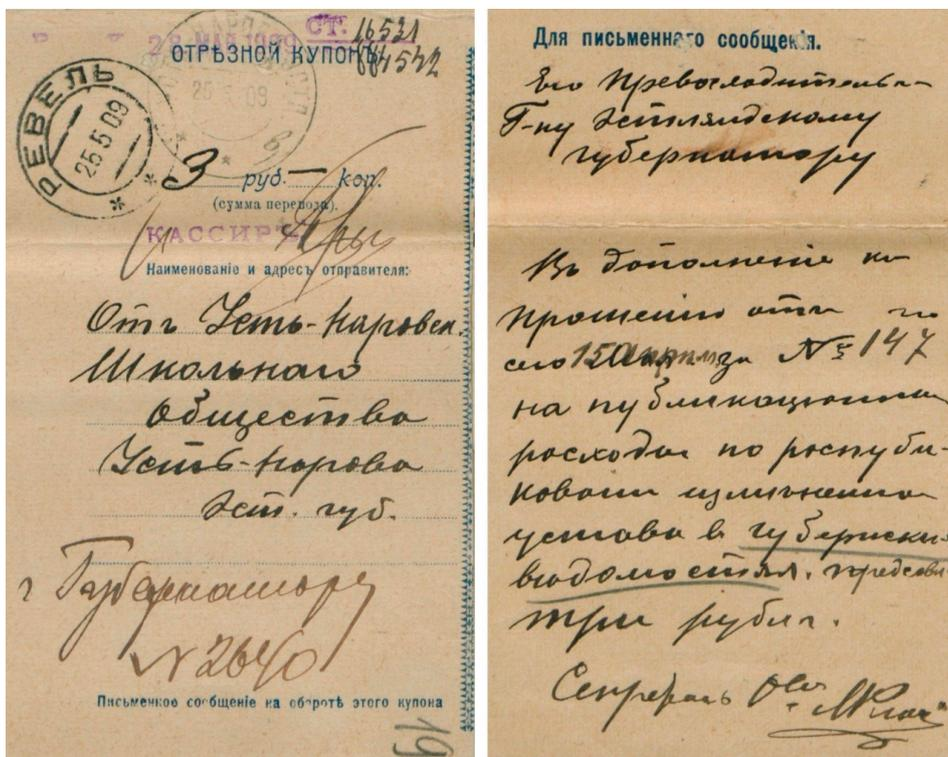 28 МАЯ 1909
СТ.
16531
ОТРѢЗНОЙ КУПОНЪ
РЕВЕЛЬ
25 5 09
25 5 09
3 руб. — коп.
(сумма перевода).
КАССИРЪ
Наименованіе и адресъ отправителя:
Отъ Усть-Наровск.
Школьнаго
Общества
Усть-Нарова
Эст. губ.
Губернатору
№ 2640
Письменное сообщеніе на оборотѣ этого купона
19
Для письменнаго сообщенія.
Его Превосходительс-
Г-ну Эстляндскому
губернатору
Въ дополненіе къ
прошенію отъ
сего 15 Апрѣля за № 147
на публикаціонные
расходы по распубли-
кованію измѣненія
устава въ губернски-
вѣдомостяхъ, представ
три рубля.
Секретарь О-ва